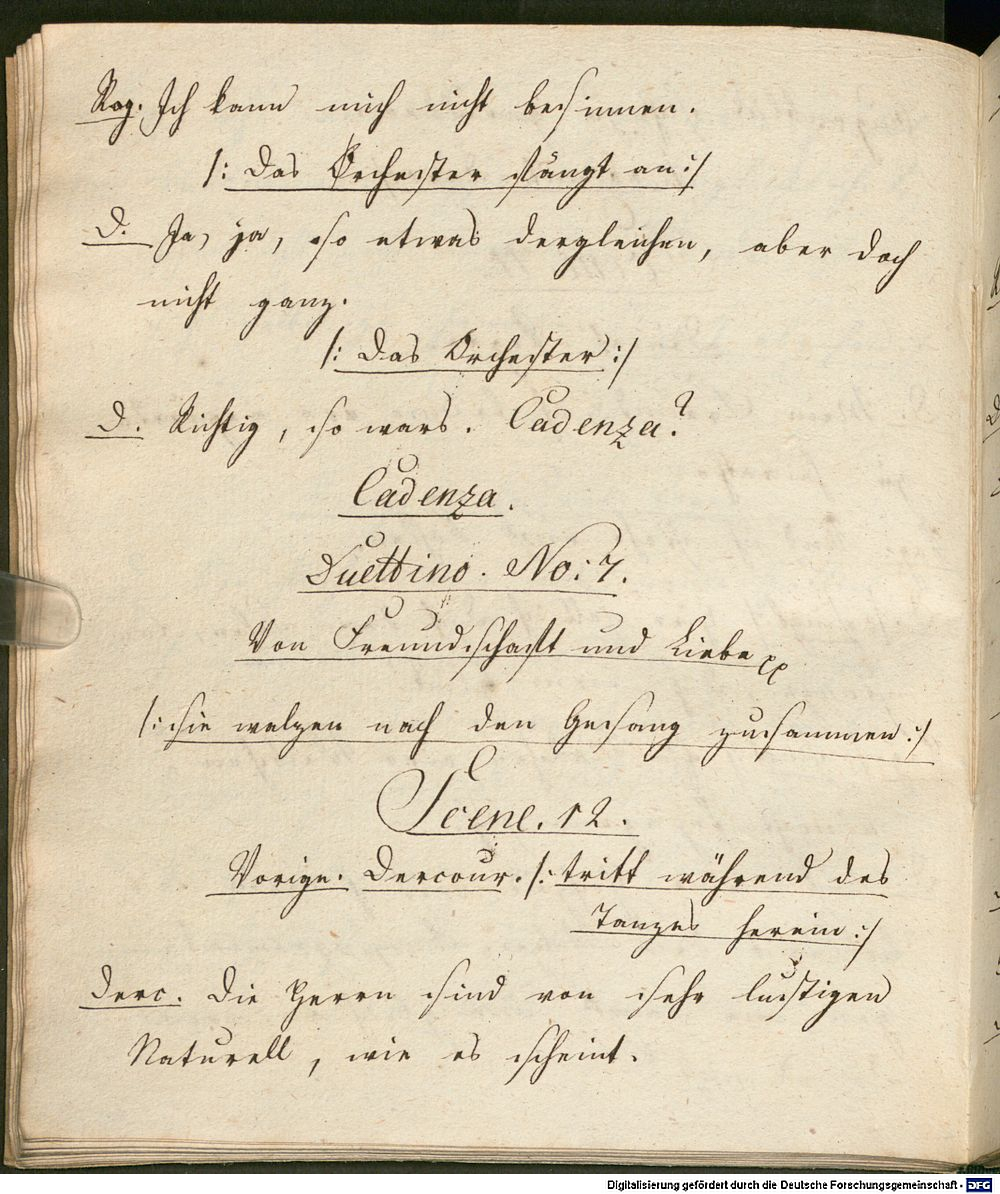 Rog. Ich kann mich nicht besinnen.
/: Das Orchester fängt an :/
D. Ja, ja, so etwas dergleichen, aber doch
nicht ganz.
/: Das Orchester :/
D. Richtig, so wars. Cadenza?
Cadenza.
Duettino. No: 7.
Von Freundschaft und Liebe
/: sie walzen nach den Gesang zusammen :/
Scene. 12.
Vorige. Dercour. /: tritt während des
Tanzes herein :/
Derc. Die Herrn sind von sehr lustigen
Naturell, wie es scheint.
Digitalisierung gefördert durch die Deutsche Forschungsgemeinschaft - DFG